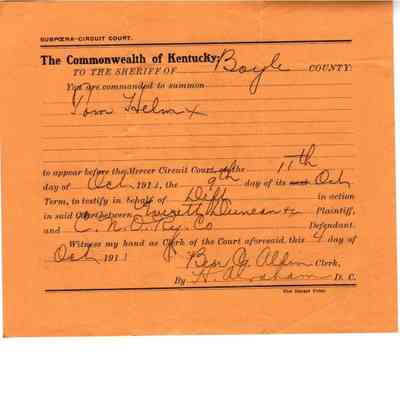 SUBPŒNA—CIRCUIT COURT.
The Commonwealth of Kentucky:
TO THE SHERIFF OF Boyle COUNTY:
You are commanded to summon
Tom Helm x
to appear before the Mercer Circuit Court, the 11th
day of Oct, 191, the 9th day of its next Oct
Term, to testify in behalf of Diff in action
in said Court between Everett Duncan &c Plaintiff,
and C. N. O. Ry. Co Defendant.
Witness my hand as Clerk of the Court aforesaid, this 4 day of
Oct, 191 Ben Allin Clerk,
By H. Abraham D. C.